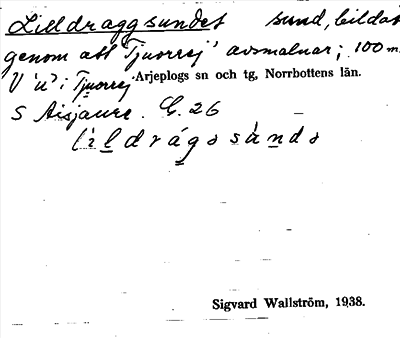 Lilldraggsundet sund, bildat
genom att Tjuorrej avsmalnar; 100 m
V 'u' i Tjuorrej Arjeplogs sn och tg, Norrbottens län.
S Aisjaure. E. 26
Sigvard Wallström, 1938.